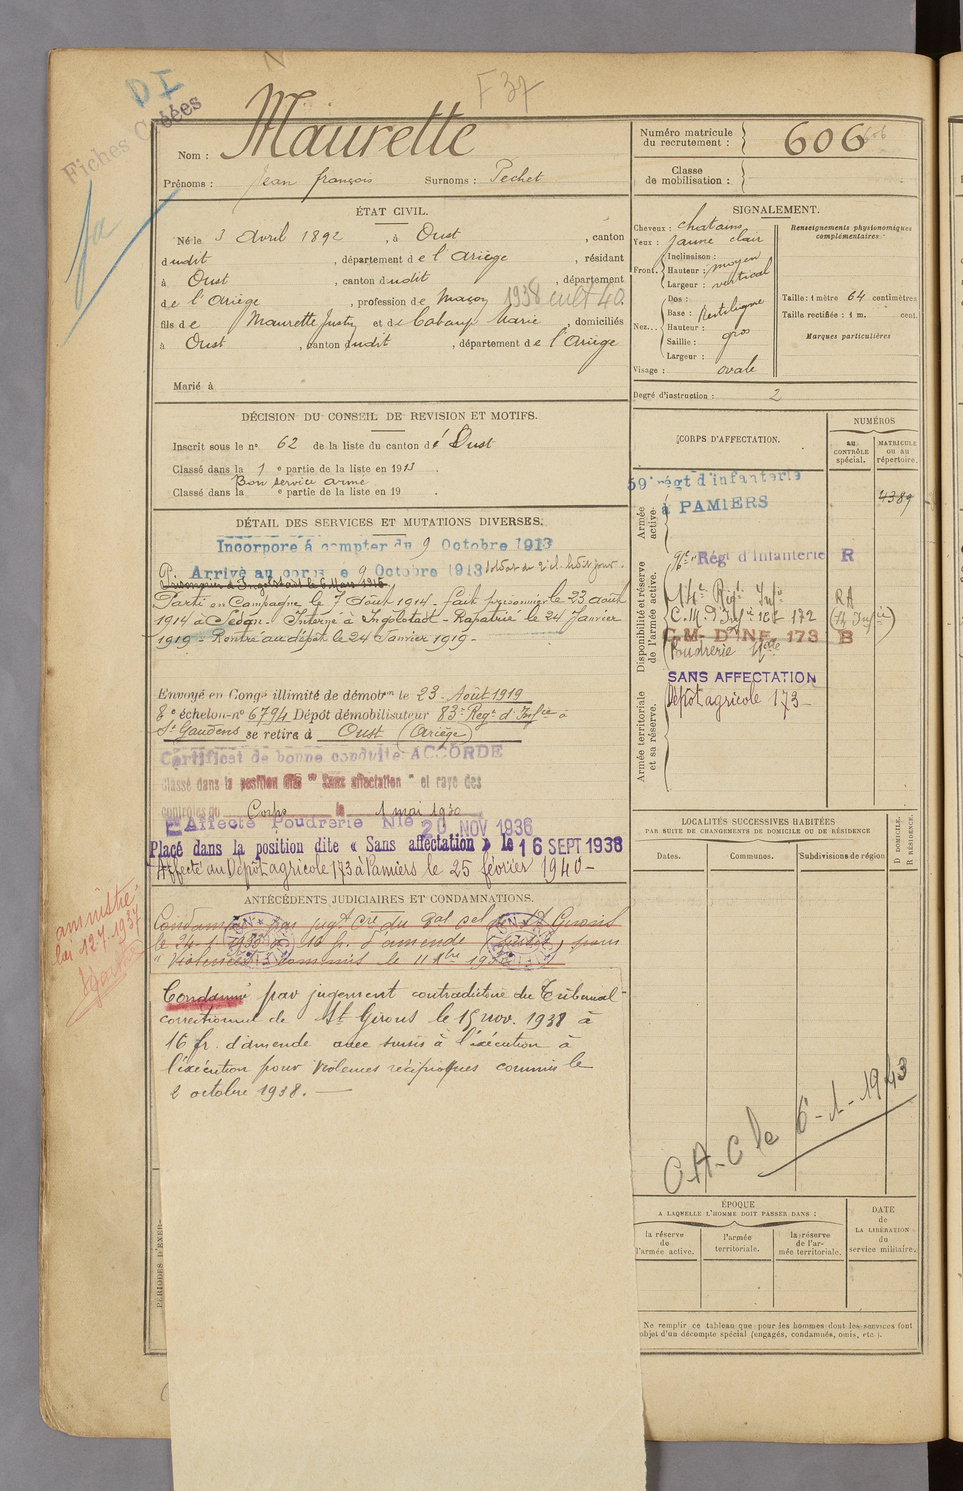 F 37
D I
Fiches Créées
Nom : Maurette
Prénoms : Jean françois Surnoms : Pechet
Numéro matricule du recrutement : 606
Classe de mobilisation :
ÉTAT CIVIL.
Né le 3 Avril 1892, à Oust, canton
dudit, département de l'Ariège, résidant
à Oust, canton dudit, département
de l'Ariège, profession de Maçon 1938 cult 40
fils de Maurette Justin et de Marie, domiciliés
à Oust, canton dudit, département de l'Ariège
Marié à
SIGNALEMENT.
Cheveux : chatains
Yeux : jaune clair
Front. Inclinaison :
Hauteur : moyen
Largeur : vertical
Nez... Dos :
Base : Rectiligne
Hauteur :
Saillie : gros
Largeur :
Visage : ovale
Renseignements physionomiques complémentaires :
Taille : 1 mètre 64 centimètres
Taille rectifiée : 1 m. cent.
Marques particulières
Degré d'instruction : 2
DÉCISION DU CONSEIL DE REVISION ET MOTIFS.
Inscrit sous le n° 62 de la liste du canton d' Oust
Classé dans la 1e partie de la liste en 1913.
Bon service armé
Classé dans la e partie de la liste en 19 .
DÉTAIL DES SERVICES ET MUTATIONS DIVERSES.
Incorporé à compter du 9 Octobre 1913
Arrivé au corps le 9 Octobre 1913 soldat de 2e cl. ledit jour.
Prisonnier à Ingolstadt le 6 Mars 1915
Parti en Campagne le 7 Août 1914 - fait prisonnier le 23 août
1914 à Sedan. Interné à Ingolstadt - Rapatrié le 24 Janvier
1919 - Rentré au dépôt le 24 Janvier 1919 -
Envoyé en Congé illimité de démobon le 23 Août 1919
8e échelon n° 6794 Dépôt démobilisateur 83e Regt d'Infie à
St Gaudens se retire à Oust (Ariège)
Certificat de bonne conduite ACCORDÉ
Classé dans la position dite "Sans affectation" et rayé des
contrôles du Corps le 1 mai 1930
Affecté Poudrerie Nle 20 NOV 1936
Placé dans la position dite « Sans affectation » le 16 SEPT 1938
Affecté au Dépôt agricole 173 à Pamiers le 25 février 1940 -
CORPS D'AFFECTATION.
NUMÉROS
au CONTRÔLE spécial.
MATRICULE ou au répertoire.
Armée active.
59e régt d'infanterie
à PAMIERS
4389
Disponibilité et réserve de l'armée active.
Régt d'Infanterie R
14e Regt Infie RA
C.M. d'Infie 172
C.M. D'INF. 173 B
Poudrerie Nle
SANS AFFECTATION
Dépôt agricole 173 -
Armée territoriale et sa réserve.
ANTÉCÉDENTS JUDICIAIRES ET CONDAMNATIONS.
amnistié
loi 12-7-1937
Condamné par jugement contradictoire du Tribunal
correctionnel de St Girons le 15 nov. 1938 à
16 fr. d'amende avec sursis à l'exécution à
l'exécution pour violences réciproques commis le
2 octobre 1938. -
LOCALITÉS SUCCESSIVES HABITÉES
PAR SUITE DE CHANGEMENTS DE DOMICILE OU DE RÉSIDENCE
Dates.
Communes.
Subdivisions de région
D DOMICILE.
R RÉSIDENCE.
C.A.C le 6-1-1943
ÉPOQUE
A LAQUELLE L'HOMME DOIT PASSER DANS :
la réserve de l'armée active.
l'armée territoriale.
la réserve de l'armée territoriale.
DATE de LA LIBÉRATION du service militaire.
Ne remplir ce tableau que pour les hommes dont les services font
objet d'un décompte spécial (engagés, condamnés, omis, etc.).
PÉRIODES D'EXER-